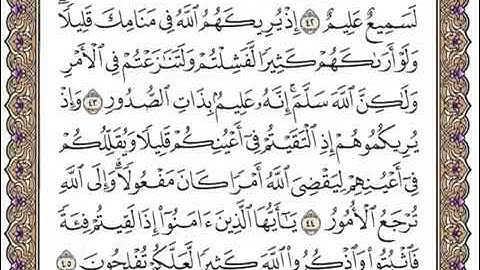 لَسَمِيعٌ عَلِيمٌ ٤٢ إِذْ يُرِيكَهُمُ ٱللَّهُ فِى مَنَامِكَ قَلِيلًا
وَلَوْ أَرَىٰكَهُمْ كَثِيرًا لَّفَشِلْتُمْ وَلَتَنَٰزَعْتُمْ فِى ٱلْأَمْرِ
وَلَٰكِنَّ ٱللَّهَ سَلَّمَ ۗ إِنَّهُۥ عَلِيمٌۢ بِذَاتِ ٱلصُّدُورِ ٤٣ وَإِذْ
يُرِيكُمُوهُمْ إِذِ ٱلْتَقَيْتُمْ فِىٓ أَعْيُنِكُمْ قَلِيلًا وَيُقَلِّلُكُمْ
فِىٓ أَعْيُنِهِمْ لِيَقْضِىَ ٱللَّهُ أَمْرًا كَانَ مَفْعُولًا ۗ وَإِلَى ٱللَّهِ
تُرْجَعُ ٱلْأُمُورُ ٤٤ يَٰٓأَيُّهَا ٱلَّذِينَ ءَامَنُوٓا۟ إِذَا لَقِيتُمْ فِئَةً
فَٱثْبُتُوا۟ وَٱذْكُرُوا۟ ٱللَّهَ كَثِيرًا لَّعَلَّكُمْ تُفْلِحُونَ ٤٥